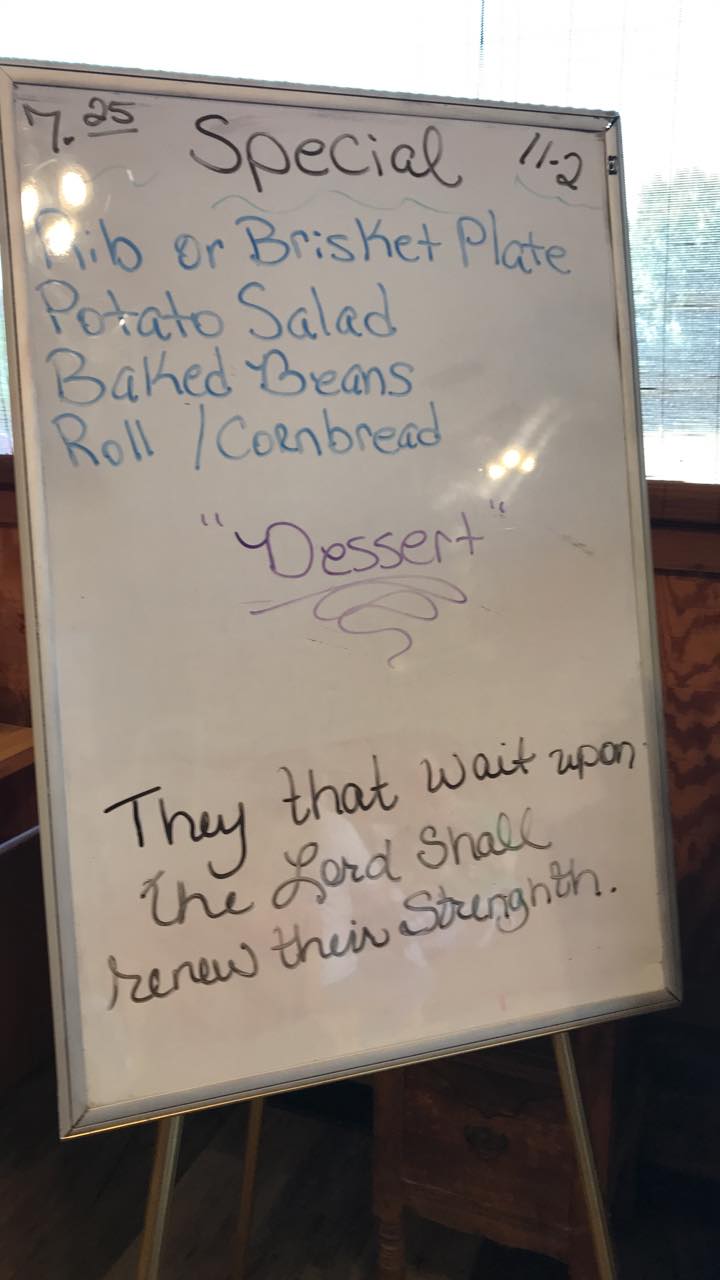 7.25 Special 11-2
Rib or Brisket Plate
Potato Salad
Baked Beans
Roll / Cornbread
"Dessert"
They that wait upon
the Lord Shall
renew their Strenghth.